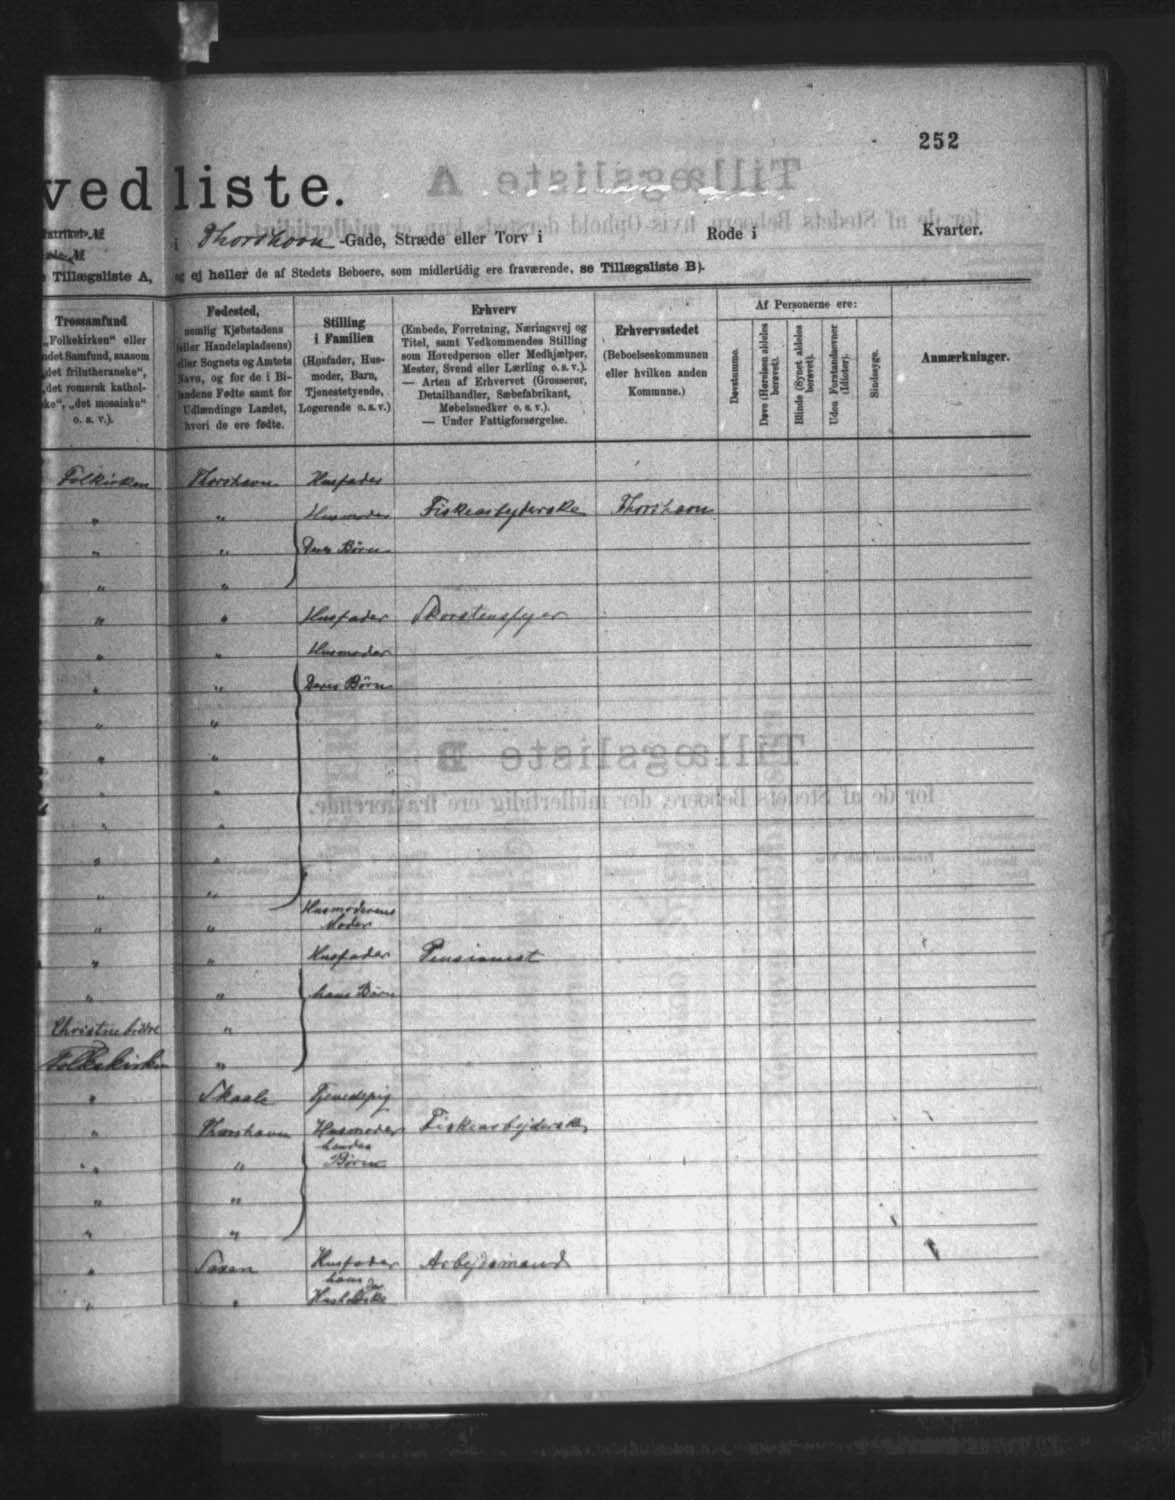 252
vedliste.
Matrikel-№ i Thorshavn -Gade, Stræde eller Torv i Rode i Kvarter.
Tillægsliste A, og ej heller de af Stedets Beboere, som midlertidig ere fraværende, se Tillægsliste B).
Trossamfund
„Folkekirken“ eller
ndet Samfund, saasom
„det frilutheranske“,
„det romersk kathol-
ke“, „det mosaiske“
o. s. v.).
Fødested,
nemlig Kjøbstadens
(eller Handelspladsens)
eller Sognets og Amtets
Navn, og for de i Bi-
landene Fødte samt for
Udlændinge Landet,
hvori de ere fødte.
Stilling
i Familien
(Husfader, Hus-
moder, Barn,
Tjenestetyende,
Logerende o. s. v.)
Erhverv
(Embede, Forretning, Næringsvej og
Titel, samt Vedkommendes Stilling
som Hovedperson eller Medhjælper,
Mester, Svend eller Lærling o. s. v.).
— Arten af Erhvervet (Grosserer,
Detailhandler, Sæbefabrikant,
Møbelsnedker o. s. v.).
— Under Fattigforsørgelse.
Erhvervsstedet
(Beboelseskommunen
eller hvilken anden
Kommune.)
Af Personerne ere:
Døvstumme.
Døve (Hørelsen aldeles
berøvet).
Blinde (Synet aldeles
berøvet).
Uden Forstandsevner
(Idioter).
Sindssyge.
Anmærkninger.
Folkirken Thorshavn Husfader
" " Husmoder Fiskearbejderske Thorshavn
" " Deres Børn
" "
" " Husfader Skorstensfejer
" " Husmoder
" " Deres Børn
" "
" "
" "
" "
" "
" "
" " Husmoderens
Moder
" " Husfader Pensionist
" " hans Børn
Christnebrødre "
Folkekirken "
" Skaale Tjenestepig
" Thorshavn Husmoder Fiskearbejderske
" " hendes
Børn
" "
" "
" Saxen Husfader Arbejdsmand
" " hans